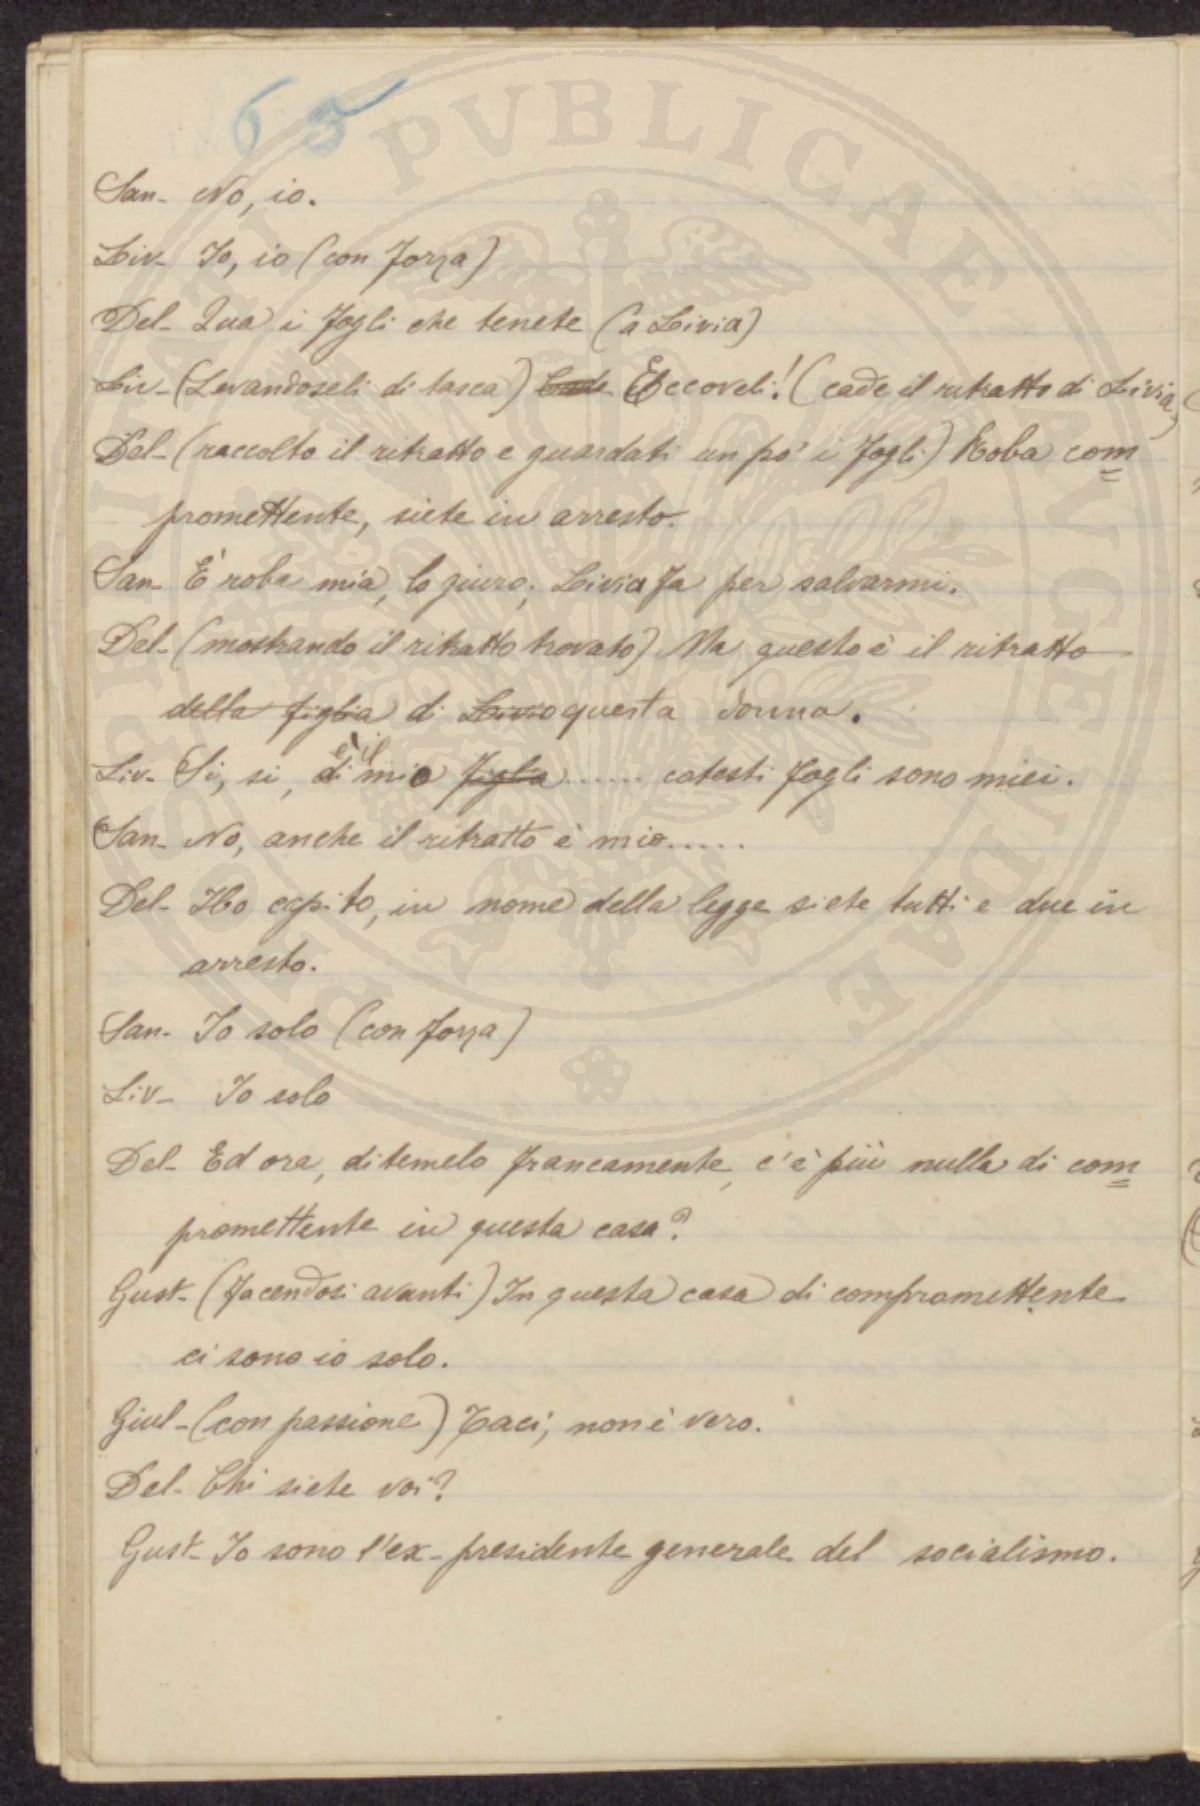 65
PVBLICAE
San- No, io.
Liv- Io, io (con forza)
Del- Qua i fogli che tenete (a Livia)
Liv- (Levandoseli di tasca) Eccoveli! (cade il ritratto di Livia)
Del- (raccolto il ritratto e guardati un po' i fogli) Roba com=
promettente, siete in arresto.
San- È roba mia, lo giuro; Livia fa per salvarmi.
Del- (mostrando il ritratto trovato) Ma questo è il ritratto
della figlia di Livio questa donna.
è il
Liv- Sì, si, di mio figlia ...... catesti fogli sono miei.
San- No, anche il ritratto è mio.....
Del- Ho capito, in nome della legge siete tutti e due in
arresto.
San- Io solo (con forza)
Liv- Io solo
Del- Ed ora, ditemelo francamente, c'è più nulla di com=
promettente in questa casa?
Gust- (facendosi avanti) In questa casa di compromettente
ci sono io solo.
Giul- (con passione) Taci, non è vero.
Del- Chi siete voi?
Gust- Io sono l'ex-presidente generale del socialismo.